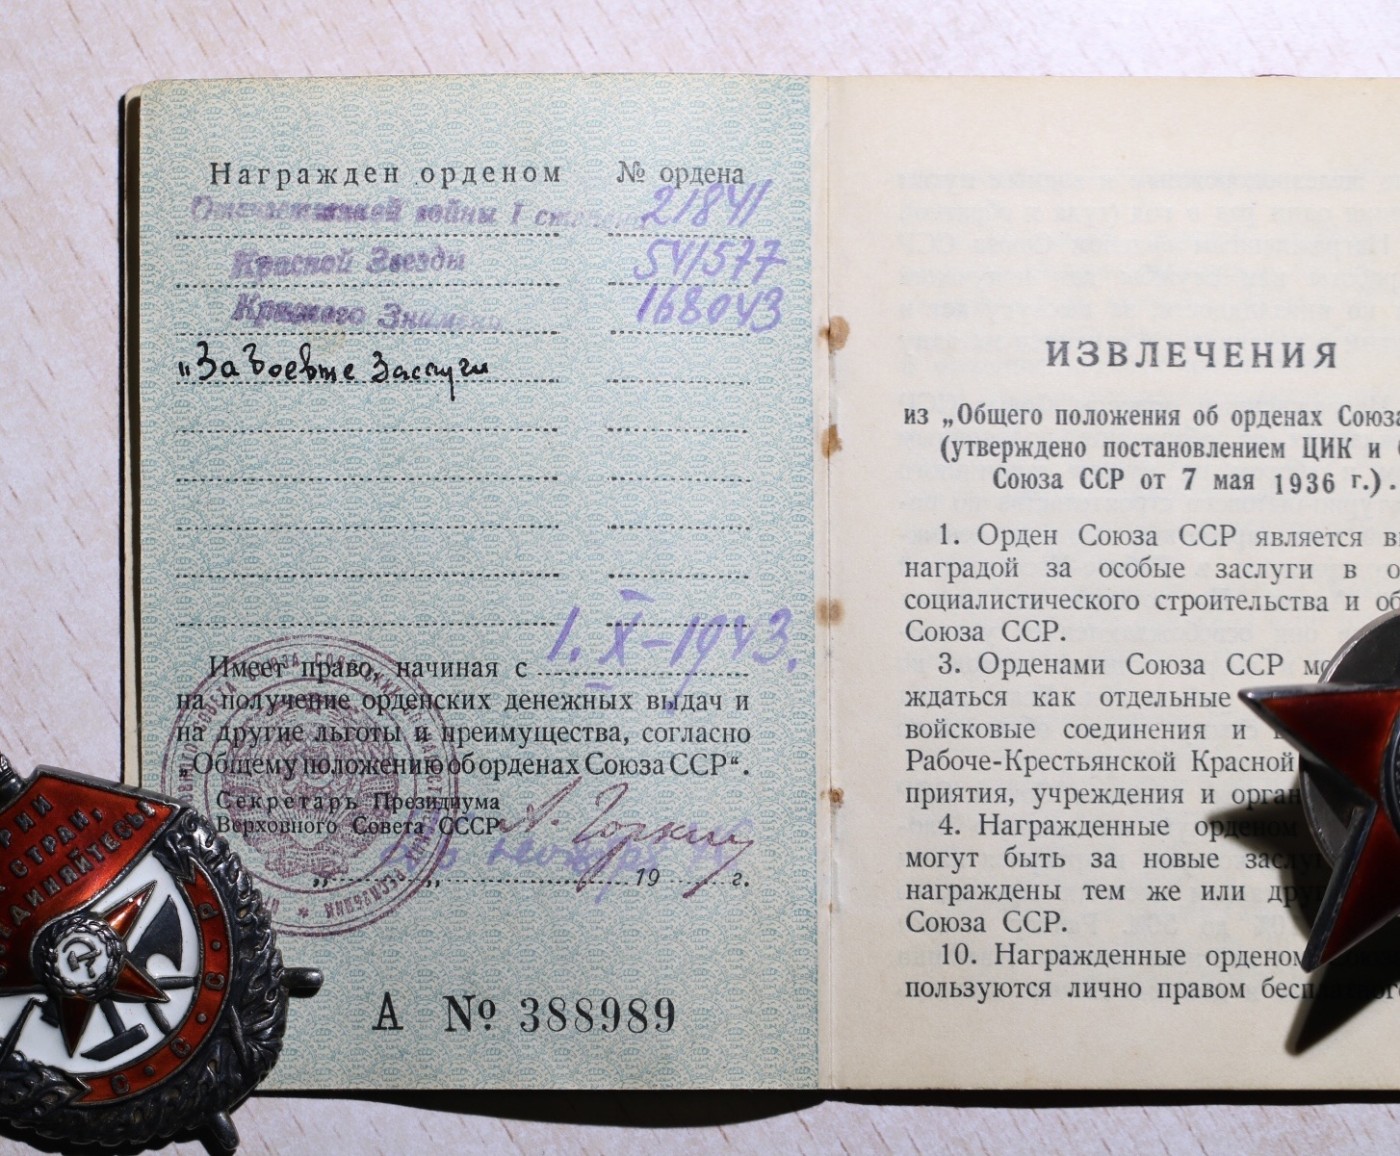 Награжден орденом № ордена
Отечественной войны I степени 21841
Красной Звезды 541577
Красного Знамени 168043
„За боевые заслуги
Имеет право, начиная с 1. X-1943.
на получение орденских денежных выдач и
на другие льготы и преимущества, согласно
„Общему положению об орденах Союза ССР“.
Секретарь Президиума
Верховного Совета СССР А. Горкин
„ „ 19 г.
А № 388989
ИЗВЛЕЧЕНИЯ
из „Общего положения об орденах Союза
(утверждено постановлением ЦИК и
Союза ССР от 7 мая 1936 г.).
1. Орден Союза ССР является
наградой за особые заслуги в
социалистического строительства и
Союза ССР.
3. Орденами Союза ССР
ждаться как отдельные
войсковые соединения и
Рабоче-Крестьянской Красной
приятия, учреждения и
4. Награжденные орденом
могут быть за новые
награждены тем же или
Союза ССР.
10. Награжденные орденом
пользуются лично правом
СТРАН,
С С Р